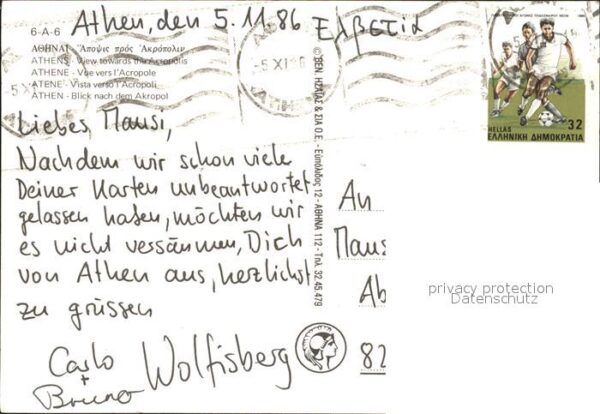 Athen, den 5.11.86
Ελβετία
6-A-6
ΑΘΗΝΑΙ Ἄποψις πρός Ἀκρόπολιν
ATHENS - View towards the Acropolis
ATHENE - Vue vers l'Acropole
ATENE - Vista verso l'Acropoli
ATHEN - Blick nach dem Akropol
-5 XI 86
Liebes Mausi,
Nachdem wir schon viele
Deiner Karten unbeantwortet
gelassen haben, möchten wir
es nicht versäumen, Dich
von Athen aus, herzlichst
zu grüssen
Carlo
+
Bruno
Wolfisberg
© ΒΕΝ. & ΣΙΑ Ο.Ε. - Εὐπόλιδος 12 - ΑΘΗΝΑ 112 - Τηλ. 32.45.479
32
HELLAS
ΕΛΛΗΝΙΚΗ ΔΗΜΟΚΡΑΤΙΑ
An
Maus
Ab
82
privacy protection
Datenschutz